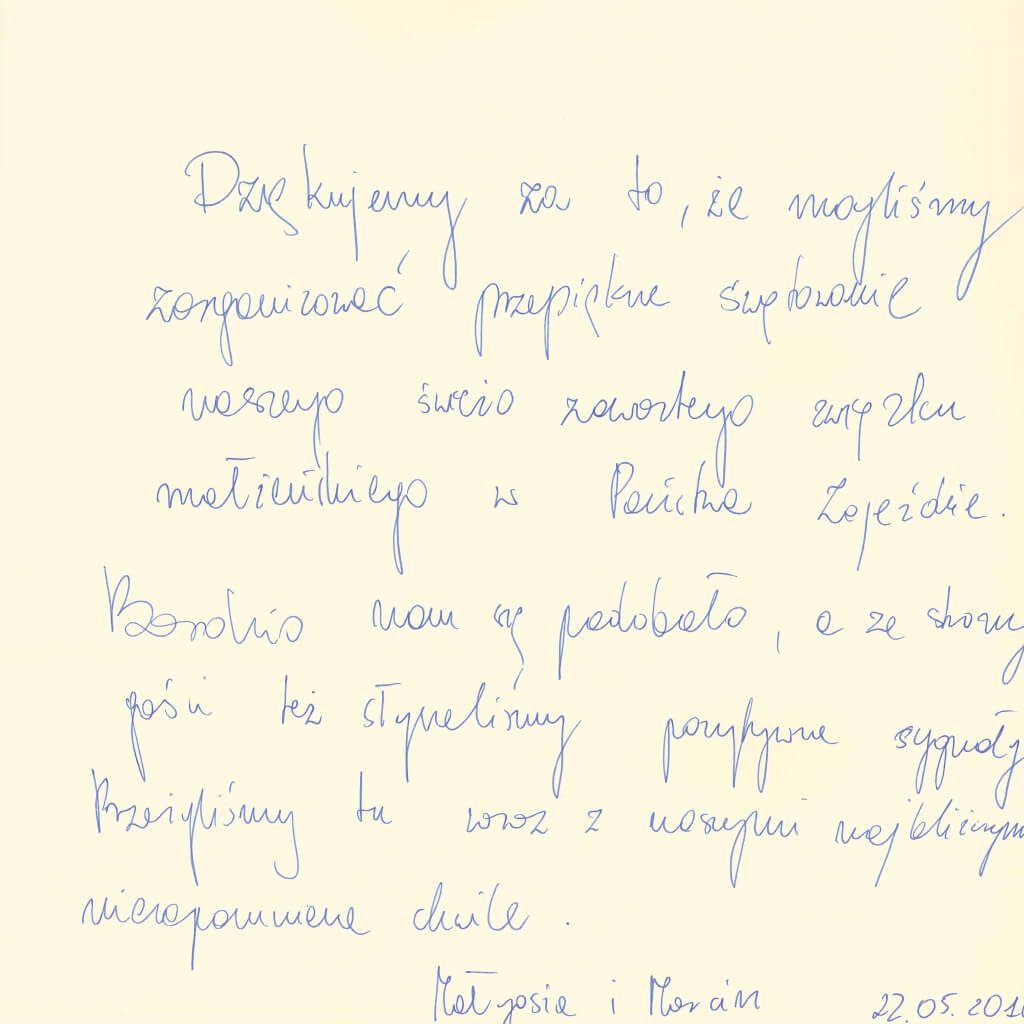 Dziękujemy za to, że mogliśmy
zorganizować przepiękne świętowanie
naszego świeżo zawartego związku
małżeńskiego w Państwa Zajeździe.
Bardzo nam się podobało, a ze strony
gości też słyszeliśmy pozytywne sygnały
Przeżyliśmy tu wraz z naszymi najbliższymi
niezapomniane chwile.
Małgosia i Marcin 22.05.201